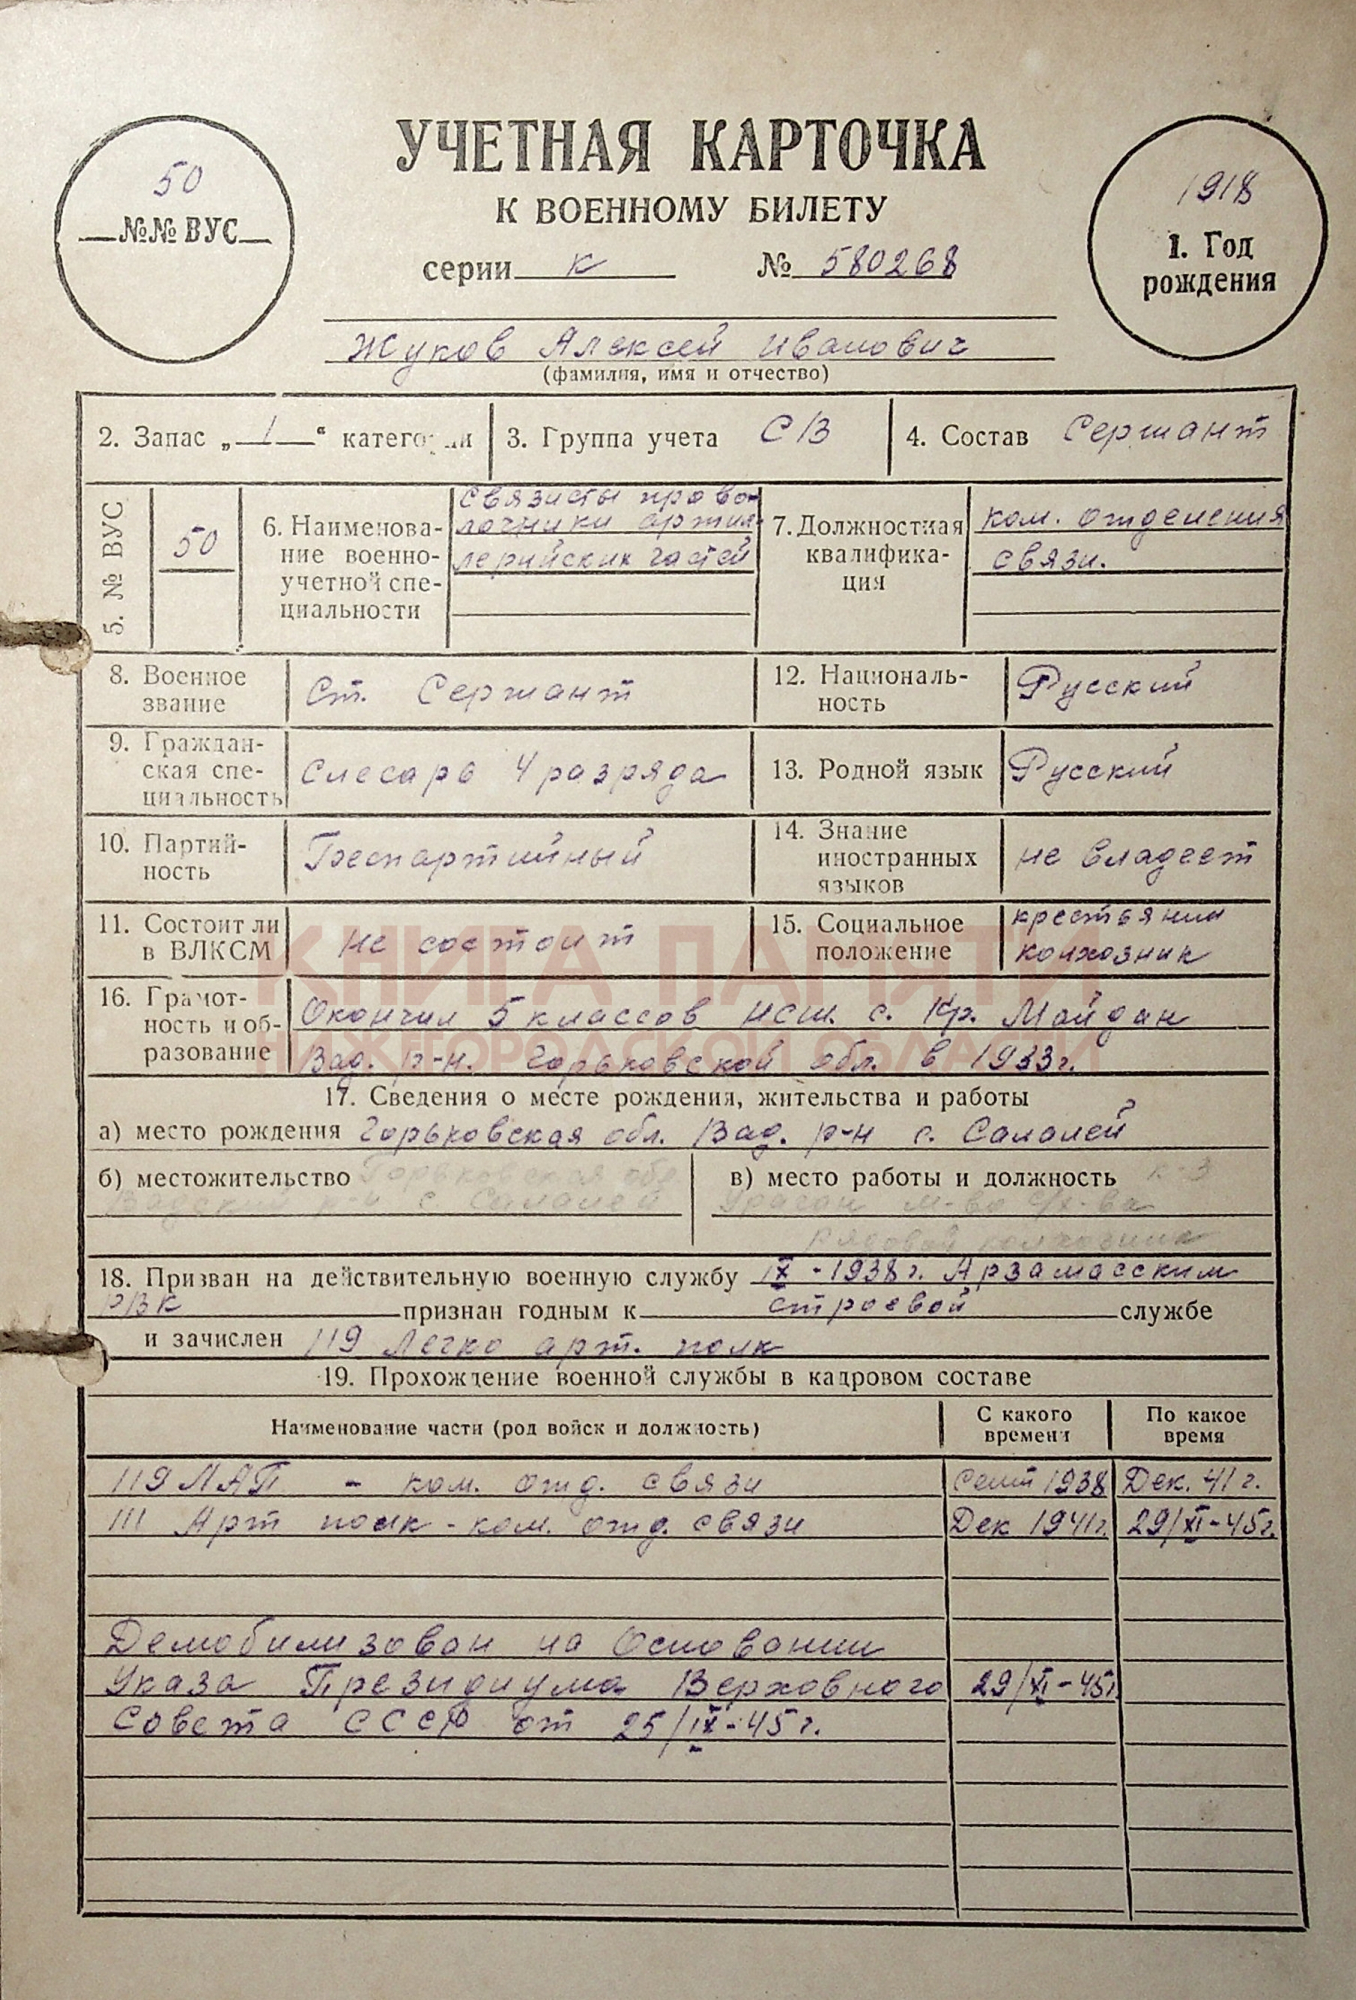 УЧЕТНАЯ КАРТОЧКА
К ВОЕННОМУ БИЛЕТУ
серии к № 580268
50
№№ ВУС
1918
1. Год
рождения
Жуков Алексей Иванович
(фамилия, имя и отчество)
2. Запас „1“ категории
3. Группа учета СВ
4. Состав Сержант
5. № ВУС
50
6. Наименова-
ние военно-
учетной спе-
циальности
связисты прово-
лочники артил-
лерийских частей
7. Должностная
квалифика-
ция
ком. отделения
связи.
8. Военное
звание
Ст. Сержант
12. Националь-
ность
Русский
9. Граждан-
ская спе-
циальность
Слесарь 4 разряда
13. Родной язык
Русский
10. Партий-
ность
Беспартийный
14. Знание
иностранных
языков
не владеет
11. Состоит ли
в ВЛКСМ
не состоит
15. Социальное
положение
крестьянин
колхозник
16. Грамот-
ность и об-
разование
Окончил 5 классов НСШ. с. Кр. Майдан
Вад. р-н. Горьковской обл. в 1933г.
КНИГА ПАМЯТИ
НИЖЕГОРОДСКОЙ ОБЛАСТИ
17. Сведения о месте рождения, жительства и работы
а) место рождения Горьковская обл. Вад. р-н с. Салалей
б) местожительство Горьковская обл
Вадский р-н с Салалей
в) место работы и должность к-з
м-во с/х-ва
рядовой колхозник
18. Призван на действительную военную службу IX-1938г. Арзамасским
РВК признан годным к строевой службе
и зачислен 119 Легко арт. полк
19. Прохождение военной службы в кадровом составе
Наименование части (род войск и должность)
С какого
времени
По какое
время
119 ЛАП - ком. отд. связи Сент 1938 Дек. 41г.
111 Арт полк - ком. отд. связи Дек 1941г. 29/XI-45г.
Демобилизован на Основании
Указа Президиума Верховного 29/XI-45г
Совета СССР от 25/IX-45г.